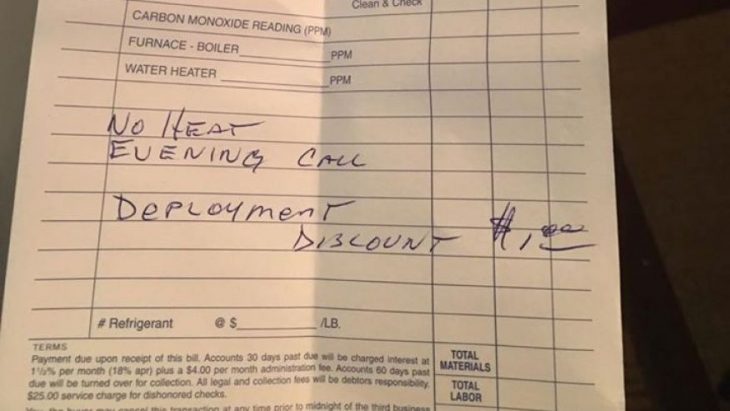 Clean & Check
CARBON MONOXIDE READING (PPM)
FURNACE - BOILER PPM
WATER HEATER PPM
NO HEAT
EVENING CALL
DEPLOYMENT
DISCOUNT $1.00
# Refrigerant @ $ /LB.
TERMS
Payment due upon receipt of this bill. Accounts 30 days past due will be charged interest at
1½% per month (18% apr) plus a $4.00 per month administration fee. Accounts 60 days past
due will be turned over for collection. All legal and collection fees will be debtors responsibility.
$25.00 service charge for dishonored checks.
TOTAL
MATERIALS
TOTAL
LABOR
may cancel this transaction at any time prior to midnight of the third business